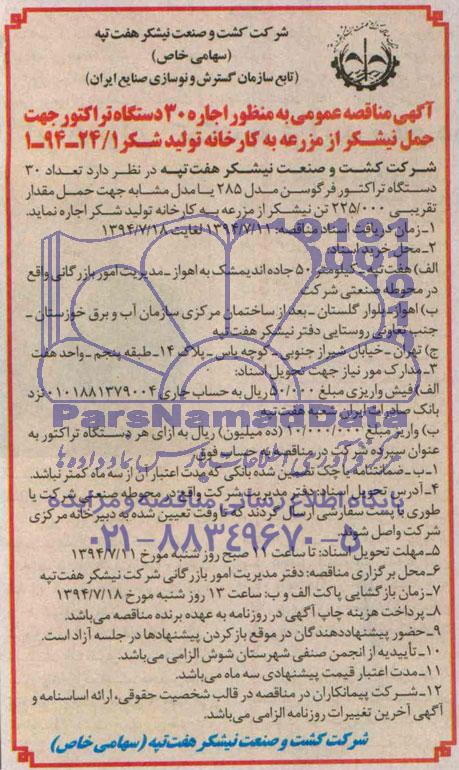 شرکت کشت و صنعت نیشکر هفت تپه
(سهامی خاص)
(تابع سازمان گسترش و نوسازی صنایع ایران)
آگهی مناقصه عمومی به منظور اجاره ۳۰ دستگاه تراکتور جهت
حمل نیشکر از مزرعه به کارخانه تولید شکر ۲۴/۱-۹۴-۱
شرکت کشت و صنعت نیشکر هفت تپه در نظر دارد تعداد ۳۰
دستگاه تراکتور فرگوسن مدل ۲۸۵ یا مدل مشابه جهت حمل مقدار
تقریبی ۲۲۵/۰۰۰ تن نیشکر از مزرعه به کارخانه تولید شکر اجاره نماید.
۱-زمان دریافت اسناد مناقصه: ۱۳۹۴/۷/۱۱ لغایت ۱۳۹۴/۷/۱۸
۲-محل خرید اسناد:
الف) هفت تپه-کیلومتر ۵۰ جاده اندیمشک به اهواز-مدیریت امور بازرگانی واقع
در محوطه صنعتی شرکت
ب) اهواز-بلوار گلستان-بعد از ساختمان مرکزی سازمان آب و برق خوزستان-
جنب تعاونی روستایی دفتر نیشکر هفت تپه
ج) تهران-خیابان شیراز جنوبی-کوچه یاس-پلاک ۱۴-طبقه پنجم-واحد هفت
۳-مدارک مور نیاز جهت تحویل اسناد:
الف) فیش واریزی مبلغ ۵۰۰/۰۰۰ ریال به حساب جاری ۰۱۰۱۸۸۱۳۷۹۰۰۴ نزد
بانک صادرات ایران شعبه هفت تپه
ب) واریز مبلغ ۱۰/۰۰۰/۰۰۰ (ده میلیون) ریال به ازای هر دستگاه تراکتور به
عنوان سپرده شرکت در مناقصه به حساب فوق
۱-ب-ضمانتنامه یا چک تضمین شده بانکی که مدت اعتبار آن از سه ماه کمتر نباشد.
۴-آدرس تحویل اسناد: دفتر مدیریت شرکت واقع در محوطه صنعتی شرکت یا
طوری با پست سفارشی ارسال گردند که تا وقت تعیین شده به دبیرخانه مرکزی
شرکت واصل شوند.
۵-مهلت تحویل اسناد: تا ساعت ۱۱ صبح روز شنبه مورخ ۱۳۹۴/۷/۲۱
۶-محل برگزاری مناقصه: دفتر مدیریت امور بازرگانی شرکت نیشکر هفت تپه
۷-زمان بازگشایی پاکت الف و ب: ساعت ۱۳ روز شنبه مورخ ۱۳۹۴/۷/۱۸
۸-پرداخت هزینه چاپ آگهی در روزنامه به عهده برنده مناقصه می‌باشد.
۹-حضور پیشنهاددهندگان در موقع بازکردن پیشنهادها در جلسه آزاد است.
۱۰-تأییدیه از انجمن صنفی شهرستان شوش الزامی می‌باشد.
۱۱-مدت اعتبار قیمت پیشنهادی سه ماه می‌باشد.
۱۲-شرکت پیمانکاران در مناقصه در قالب شخصیت حقوقی، ارائه اساسنامه و
آگهی آخرین تغییرات روزنامه الزامی می‌باشد.
شرکت کشت و صنعت نیشکر هفت تپه (سهامی خاص)
ParsNamadData
پایگاه اطلاع رسانی مناقصه و مزایده
۰۲۱-۸۸۳۴۹۶۷۰-۵